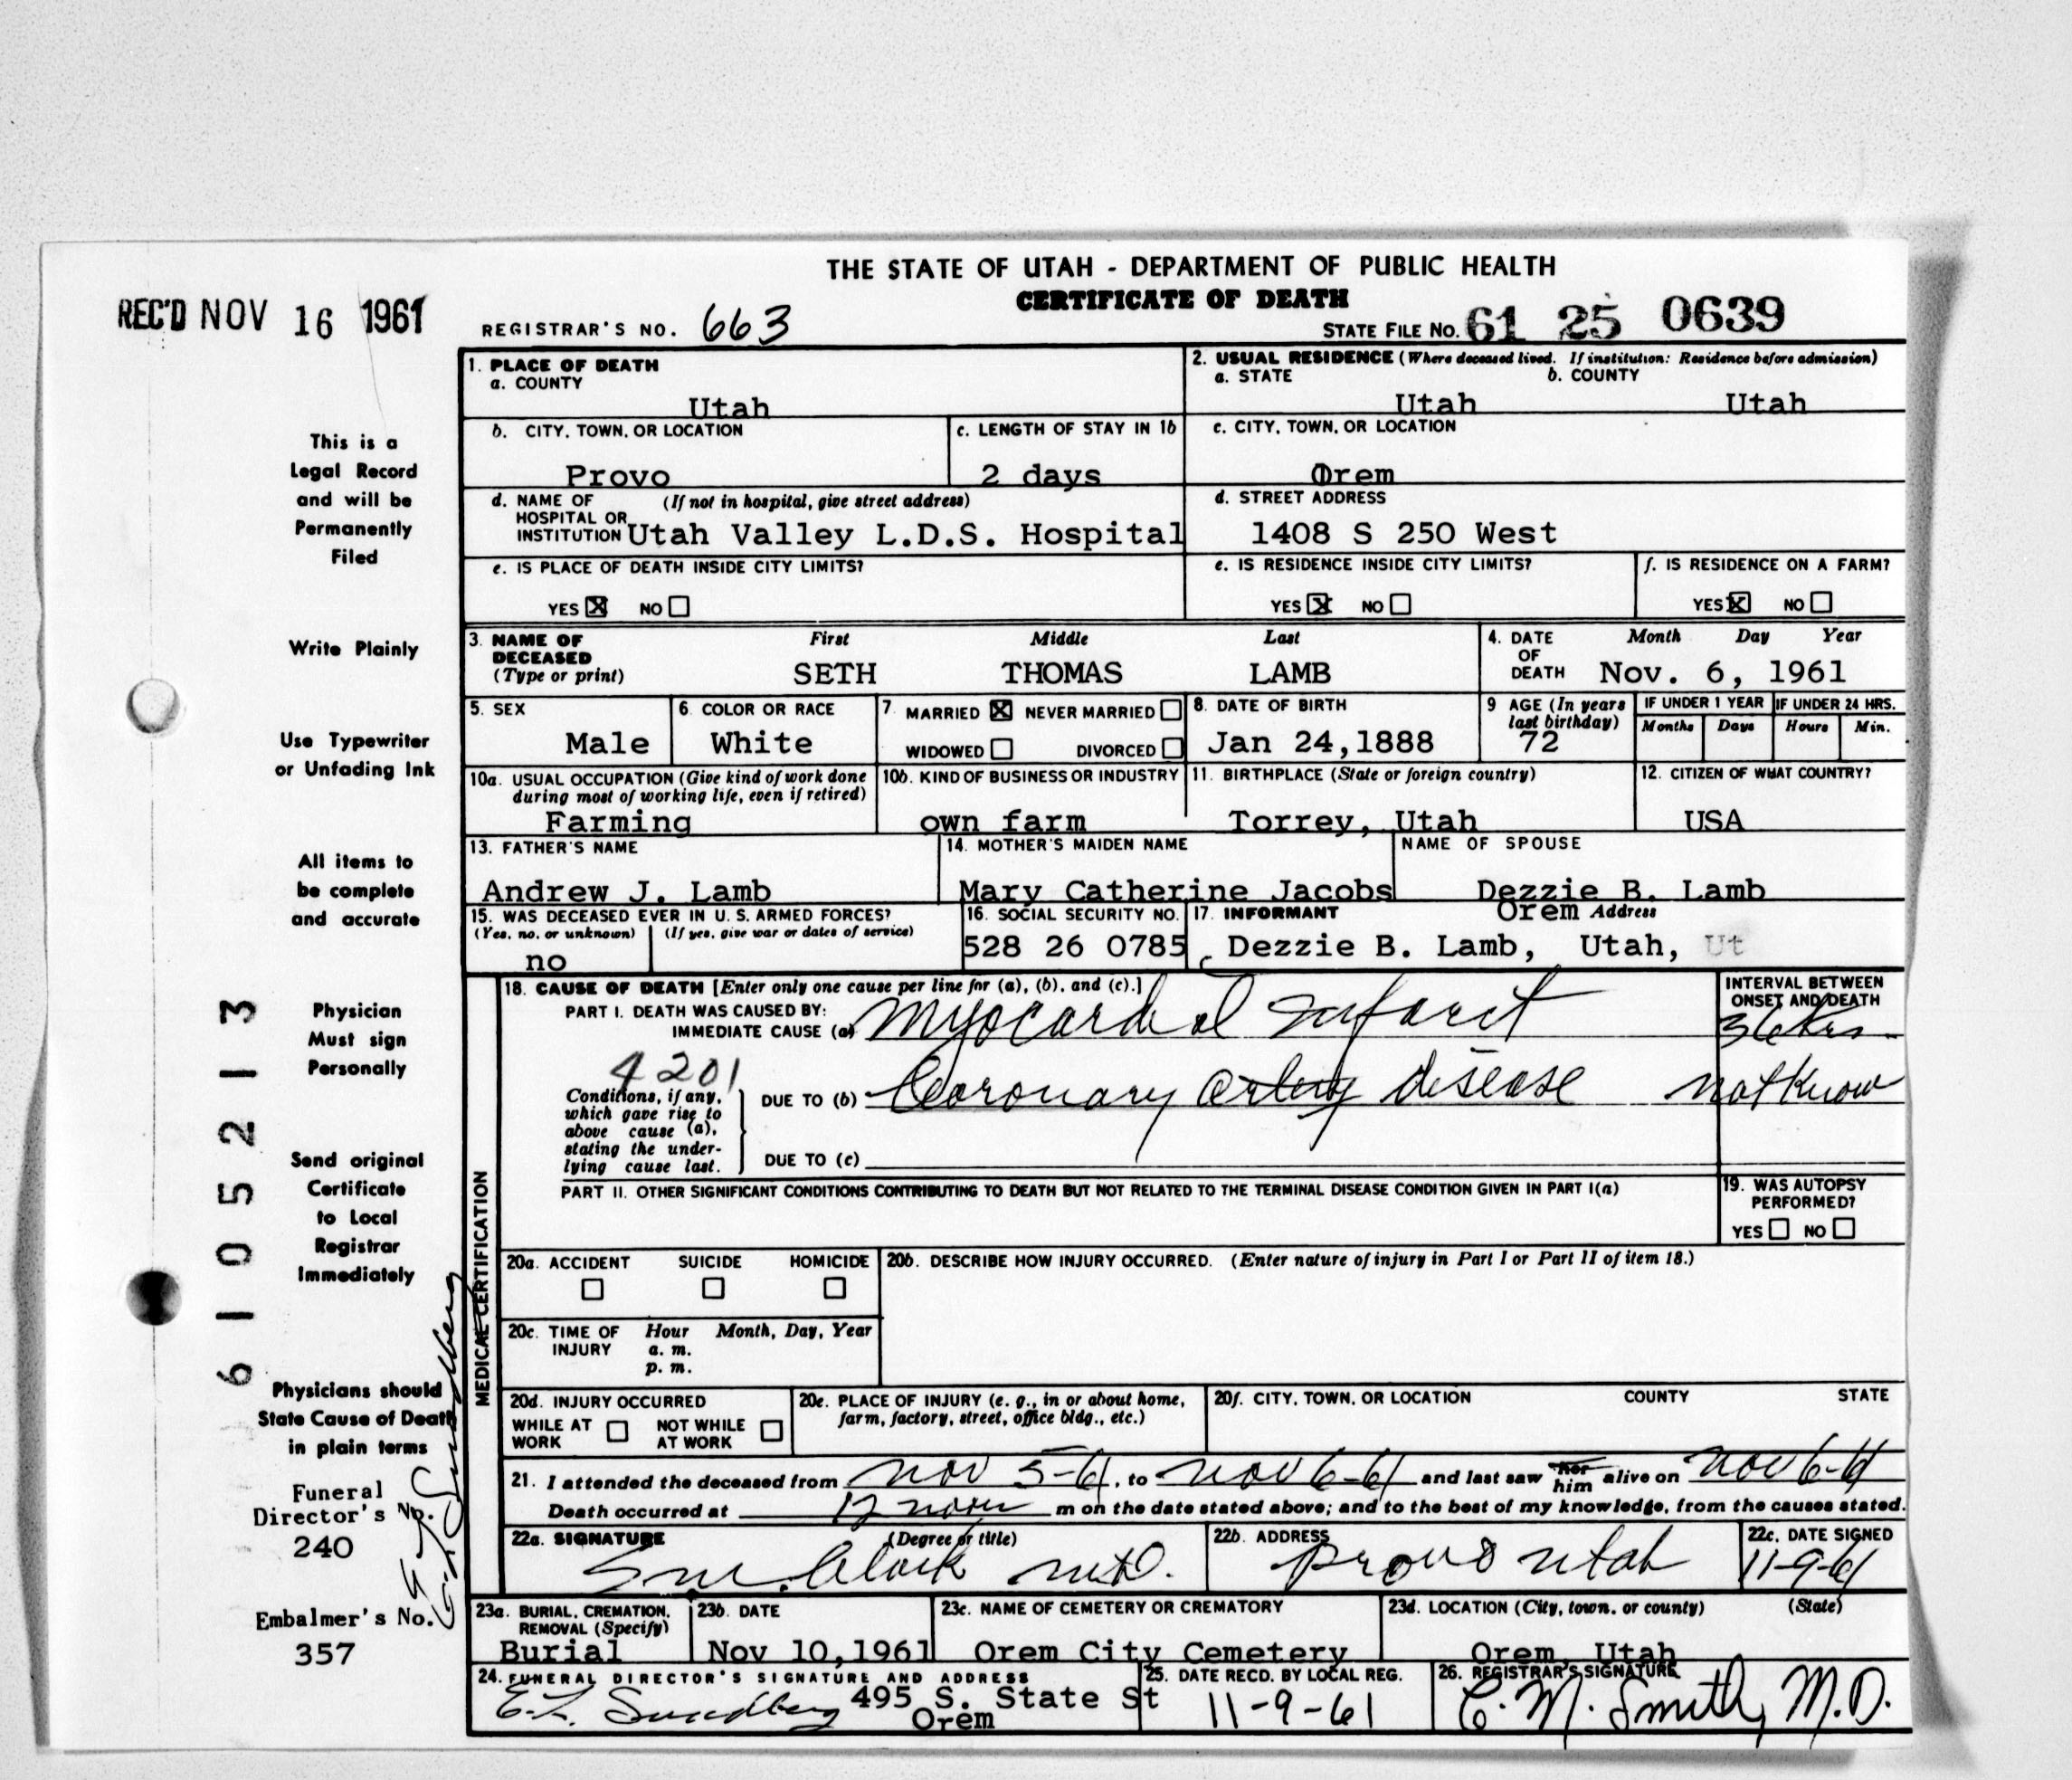 THE STATE OF UTAH - DEPARTMENT OF PUBLIC HEALTH
CERTIFICATE OF DEATH
REC'D NOV 16 1961
REGISTRAR'S NO. 663
STATE FILE NO. 61 25 0639
1. PLACE OF DEATH
a. COUNTY
Utah
2. USUAL RESIDENCE (Where deceased lived. If institution: Residence before admission)
a. STATE b. COUNTY
Utah Utah
b. CITY, TOWN, OR LOCATION
Provo
c. LENGTH OF STAY IN 1b
2 days
c. CITY, TOWN, OR LOCATION
Orem
d. NAME OF (If not in hospital, give street address)
HOSPITAL OR
INSTITUTION Utah Valley L.D.S. Hospital
d. STREET ADDRESS
1408 S 250 West
e. IS PLACE OF DEATH INSIDE CITY LIMITS?
YES ☒ NO ☐
e. IS RESIDENCE INSIDE CITY LIMITS?
YES ☒ NO ☐
f. IS RESIDENCE ON A FARM?
YES ☒ NO ☐
3. NAME OF DECEASED
(Type or print)
First Middle Last
SETH THOMAS LAMB
4. DATE OF DEATH
Month Day Year
Nov. 6, 1961
5. SEX
Male
6. COLOR OR RACE
White
7. MARRIED ☒ NEVER MARRIED ☐
WIDOWED ☐ DIVORCED ☐
8. DATE OF BIRTH
Jan 24,1888
9 AGE (In years last birthday)
72
IF UNDER 1 YEAR IF UNDER 24 HRS.
Months Days Hours Min.
10a. USUAL OCCUPATION (Give kind of work done
during most of working life, even if retired)
Farming
10b. KIND OF BUSINESS OR INDUSTRY
own farm
11. BIRTHPLACE (State or foreign country)
Torrey, Utah
12. CITIZEN OF WHAT COUNTRY?
USA
13. FATHER'S NAME
Andrew J. Lamb
14. MOTHER'S MAIDEN NAME
Mary Catherine Jacobs
NAME OF SPOUSE
Dezzie B. Lamb
15. WAS DECEASED EVER IN U. S. ARMED FORCES?
(Yes, no, or unknown) (If yes, give war or dates of service)
no
16. SOCIAL SECURITY NO.
528 26 0785
17. INFORMANT Orem Address
Dezzie B. Lamb, Utah, Ut
MEDICAL CERTIFICATION
18. CAUSE OF DEATH [Enter only one cause per line for (a), (b), and (c).]
PART I. DEATH WAS CAUSED BY:
IMMEDIATE CAUSE (a) Myocardial Infarct
INTERVAL BETWEEN
ONSET AND DEATH
36 hrs
4201
Conditions, if any,
which gave rise to
above cause (a),
stating the under-
lying cause last.
DUE TO (b) Coronary artery disease not know
DUE TO (c)
PART II. OTHER SIGNIFICANT CONDITIONS CONTRIBUTING TO DEATH BUT NOT RELATED TO THE TERMINAL DISEASE CONDITION GIVEN IN PART I(a)
19. WAS AUTOPSY
PERFORMED?
YES ☐ NO ☐
20a. ACCIDENT SUICIDE HOMICIDE
☐ ☐ ☐
20b. DESCRIBE HOW INJURY OCCURRED. (Enter nature of injury in Part I or Part II of item 18.)
20c. TIME OF INJURY Hour Month, Day, Year
a. m.
p. m.
20d. INJURY OCCURRED
WHILE AT WORK ☐ NOT WHILE AT WORK ☐
20e. PLACE OF INJURY (e. g., in or about home,
farm, factory, street, office bldg., etc.)
20f. CITY, TOWN, OR LOCATION COUNTY STATE
21. I attended the deceased from Nov 5-61, to Nov 6-61 and last saw her him alive on Nov 6-61
Death occurred at 12 noon m on the date stated above; and to the best of my knowledge, from the causes stated.
22a. SIGNATURE (Degree or title)
Clark M.D.
22b. ADDRESS
Provo Utah
22c. DATE SIGNED
11-9-61
23a. BURIAL, CREMATION,
REMOVAL (Specify)
Burial
23b. DATE
Nov 10,1961
23c. NAME OF CEMETERY OR CREMATORY
Orem City Cemetery
23d. LOCATION (City, town, or county) (State)
Orem Utah
24. FUNERAL DIRECTOR'S SIGNATURE AND ADDRESS
E.L. Sundberg 495 S. State St
Orem
25. DATE RECD. BY LOCAL REG.
11-9-61
26. REGISTRAR'S SIGNATURE
C. M. Smith, M.D.
This is a
Legal Record
and will be
Permanently
Filed
Write Plainly
Use Typewriter
or Unfading Ink
All items to
be complete
and accurate
Physician
Must sign
Personally
Send original
Certificate
to Local
Registrar
Immediately
Physicians should
State Cause of Death
in plain terms
Funeral
Director's No.
240
Embalmer's No.
357
61052 13
Sundberg